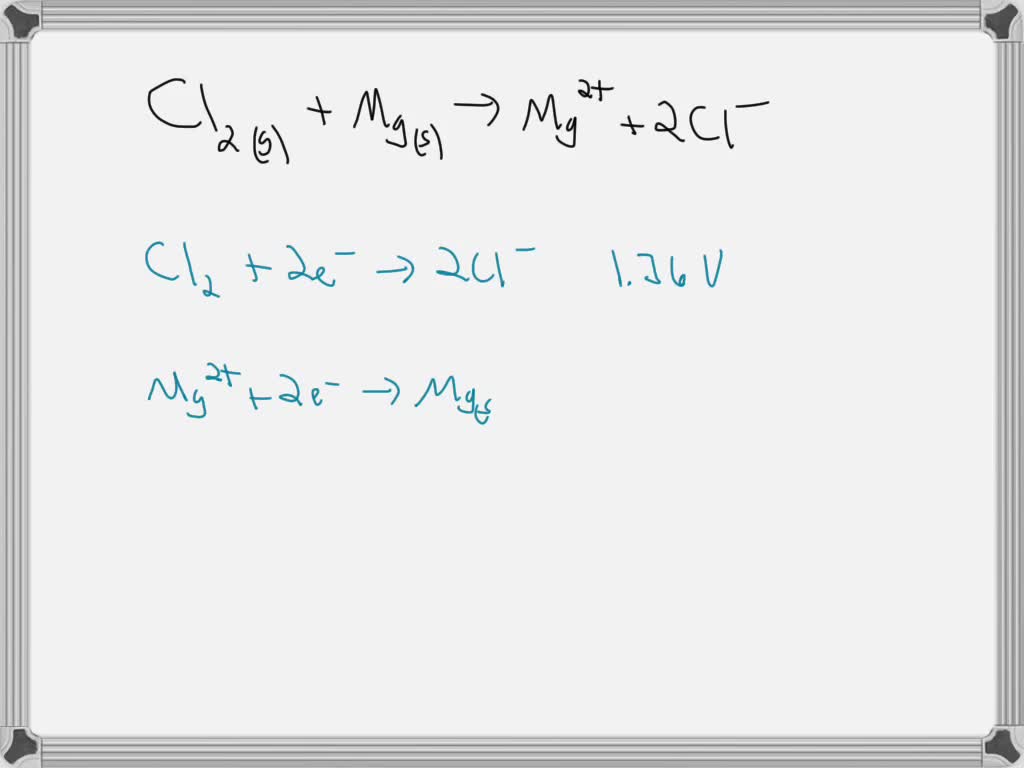 Cl₂(g) + Mg(s) → Mg²⁺ + 2Cl⁻
Cl₂ + 2e⁻ → 2Cl⁻ 1.36 V
Mg²⁺ + 2e⁻ → Mg(s